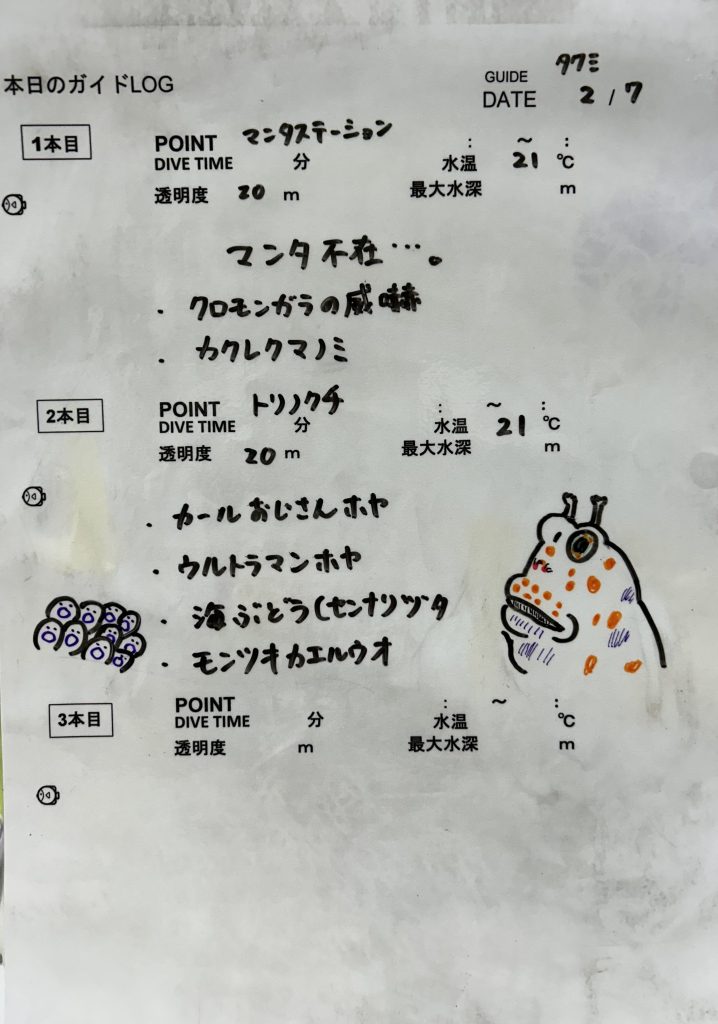 本日のガイドLOG
GUIDE タクミ
DATE 2 / 7
1本目
POINT マンタステーション : ~ :
DIVE TIME 分 水温 21 ℃
透明度 20 m 最大水深 m
マンタ不在…。
・クロモンガラの威嚇
・カクレクマノミ
2本目
POINT トリノクチ : ~ :
DIVE TIME 分 水温 21 ℃
透明度 20 m 最大水深 m
・カールおじさんホヤ
・ウルトラマンホヤ
・海ぶどう(センナリヅタ
・モンツキカエルウオ
3本目
POINT : ~ :
DIVE TIME 分 水温 ℃
透明度 m 最大水深 m